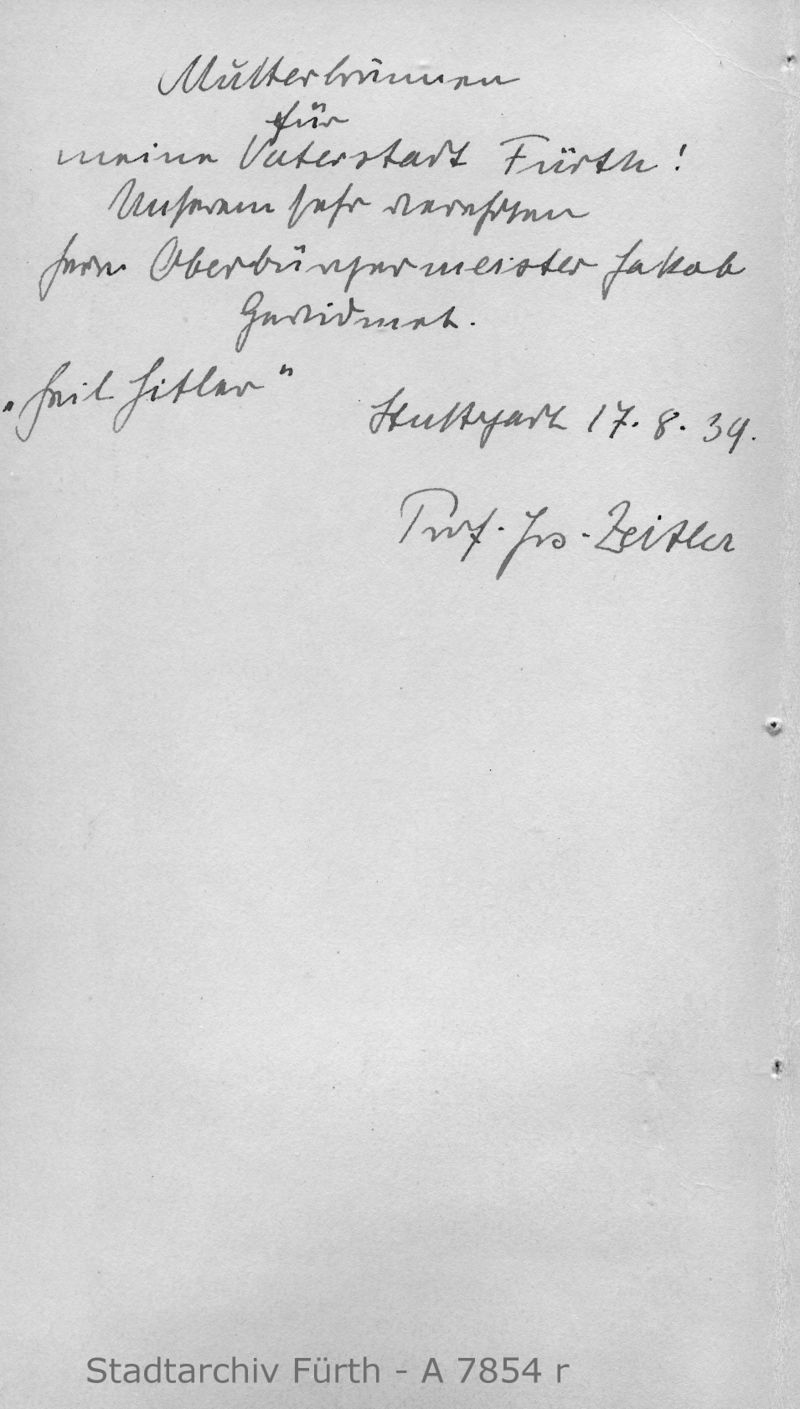 Mutterbrunnen
für
meine Vaterstadt Fürth!
Unserem sehr verehrten
Herrn Oberbürgermeister Jakob
Gewidmet.
„Heil Hitler"
Stuttgart 17. 8. 39.
Prof. Jos. Zeitler
Stadtarchiv Fürth - A 7854 r